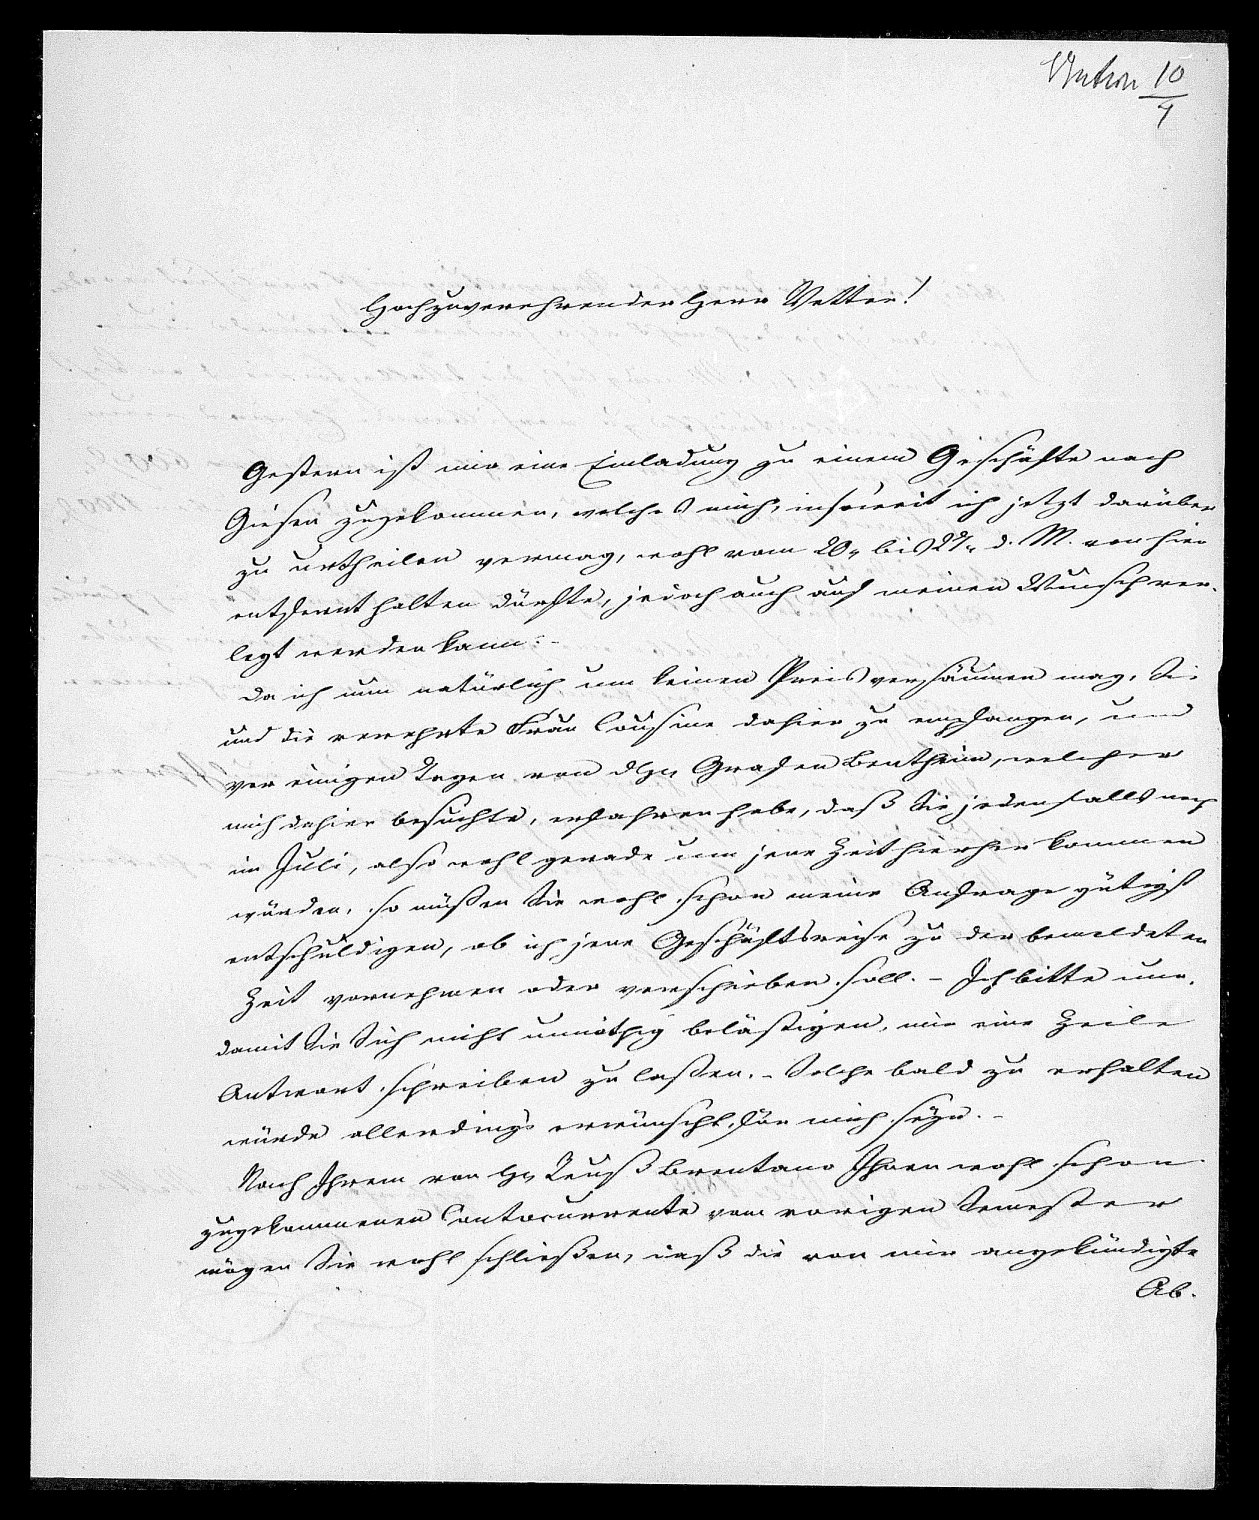 10
4
Hochzuverehrender Herr Vetter!
Gestern ist mir eine Einladung zu einem Geschäfte nach
Giesen zugekommen, welches mich, insoweit ich jetzt darüber
zu urtheilen vermag, wohl vom 20n bis 29n d. M. von hier
entfernt halten dürfte, jedoch auch auf meinen Wunsch ver-
legt werden kann.-
Da ich nun natürlich um keinen Preis versäumen mag, Sie
und die verehrte Frau Cousine dahier zu empfangen, und
vor einigen Tagen von dem Grafen Bentheim, welcher
mich dahier besuchte, erfahren habe, daß Sie jedenfalls noch
im Juli, also wohl gerade um jene Zeit hierher kommen
würden, so müßen Sie wohl schon meine Anfrage gütigst
entschuldigen, ob ich jene Geschäftsreise zu der bemeldeten
Zeit vornehmen oder verschieben soll. - Ich bitte nur,
damit Sie Sich nicht unnöthig belästigen, mir eine Zeile
Antwort schreiben zu laßen. - Solche bald zu erhalten
würde allerdings erwünscht für mich seyn. -
Nach Ihrem von H. Brentano Ihnen wohl schon
zugekommenen Contocurrente vom vorigen Semester
mögen Sie wohl schließen, daß die von mir angekündigte
Ab-